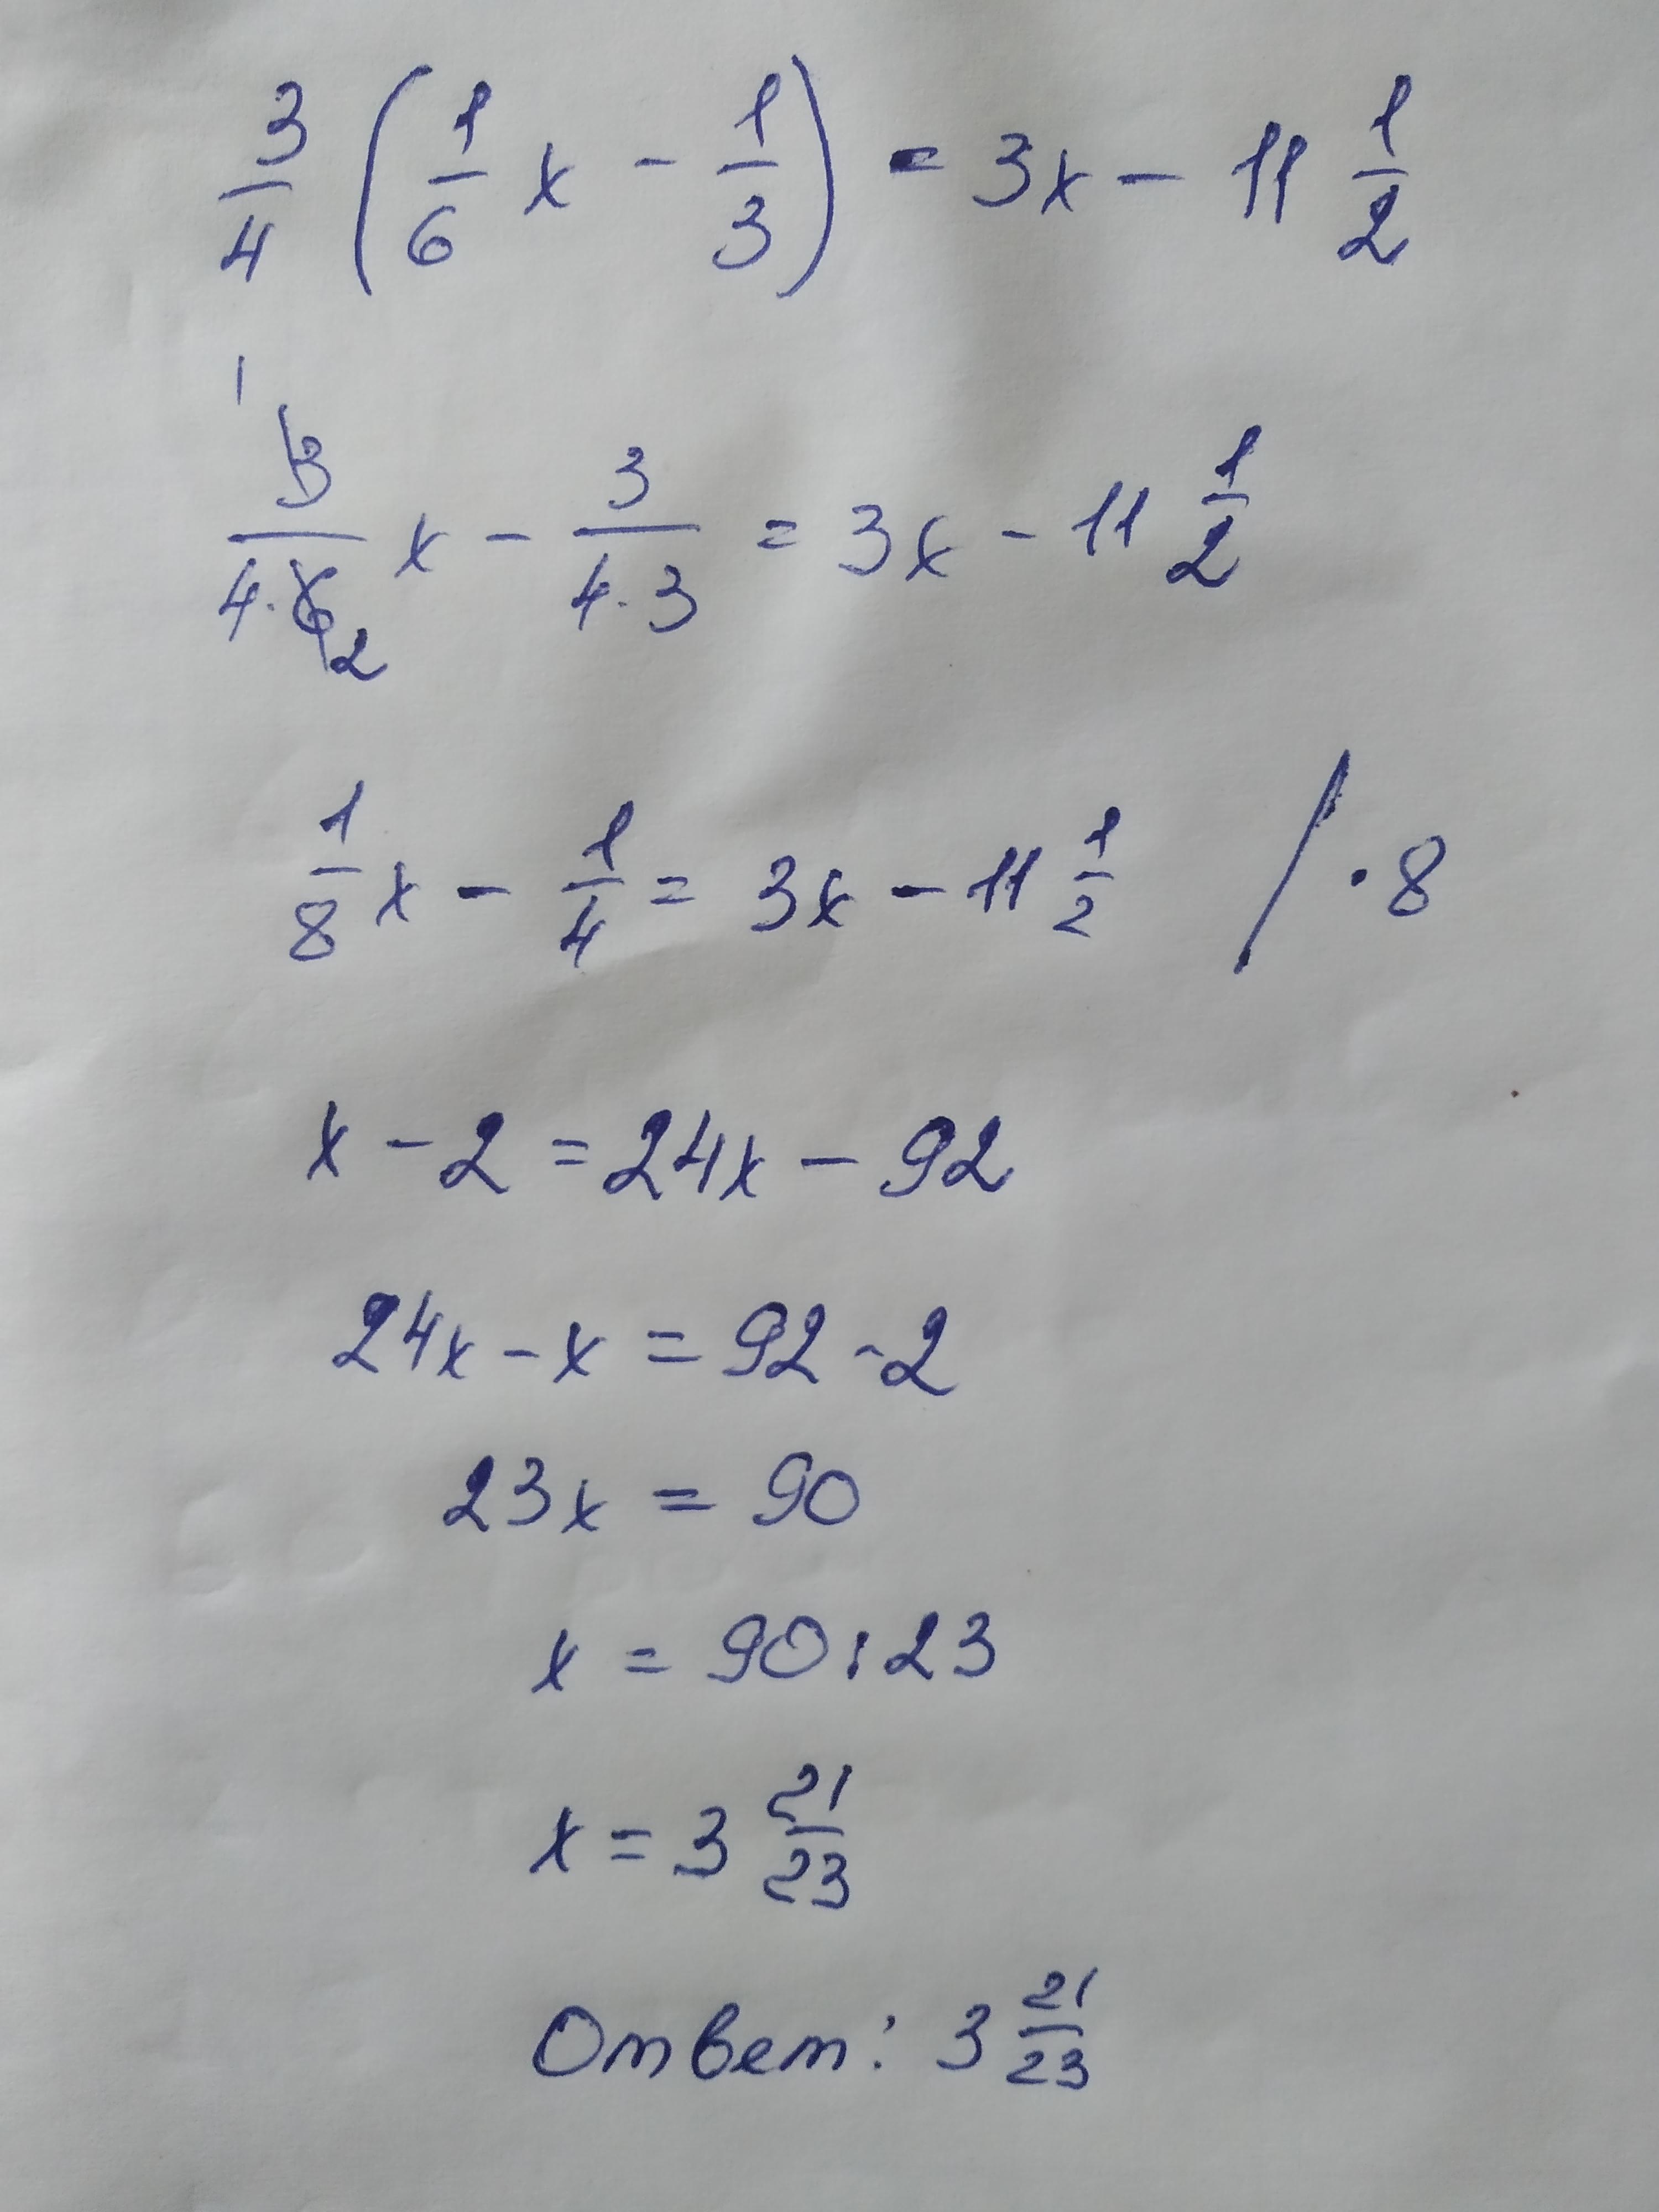 3/4 (1/6 x - 1/3) = 3x - 11 1/2
1
3/4·6 2 x - 3/4·3 = 3x - 11 1/2
1/8 x - 1/4 = 3x - 11 1/2 / · 8
x - 2 = 24x - 92
24x - x = 92 - 2
23x = 90
x = 90 : 23
x = 3 21/23
Ответ: 3 21/23